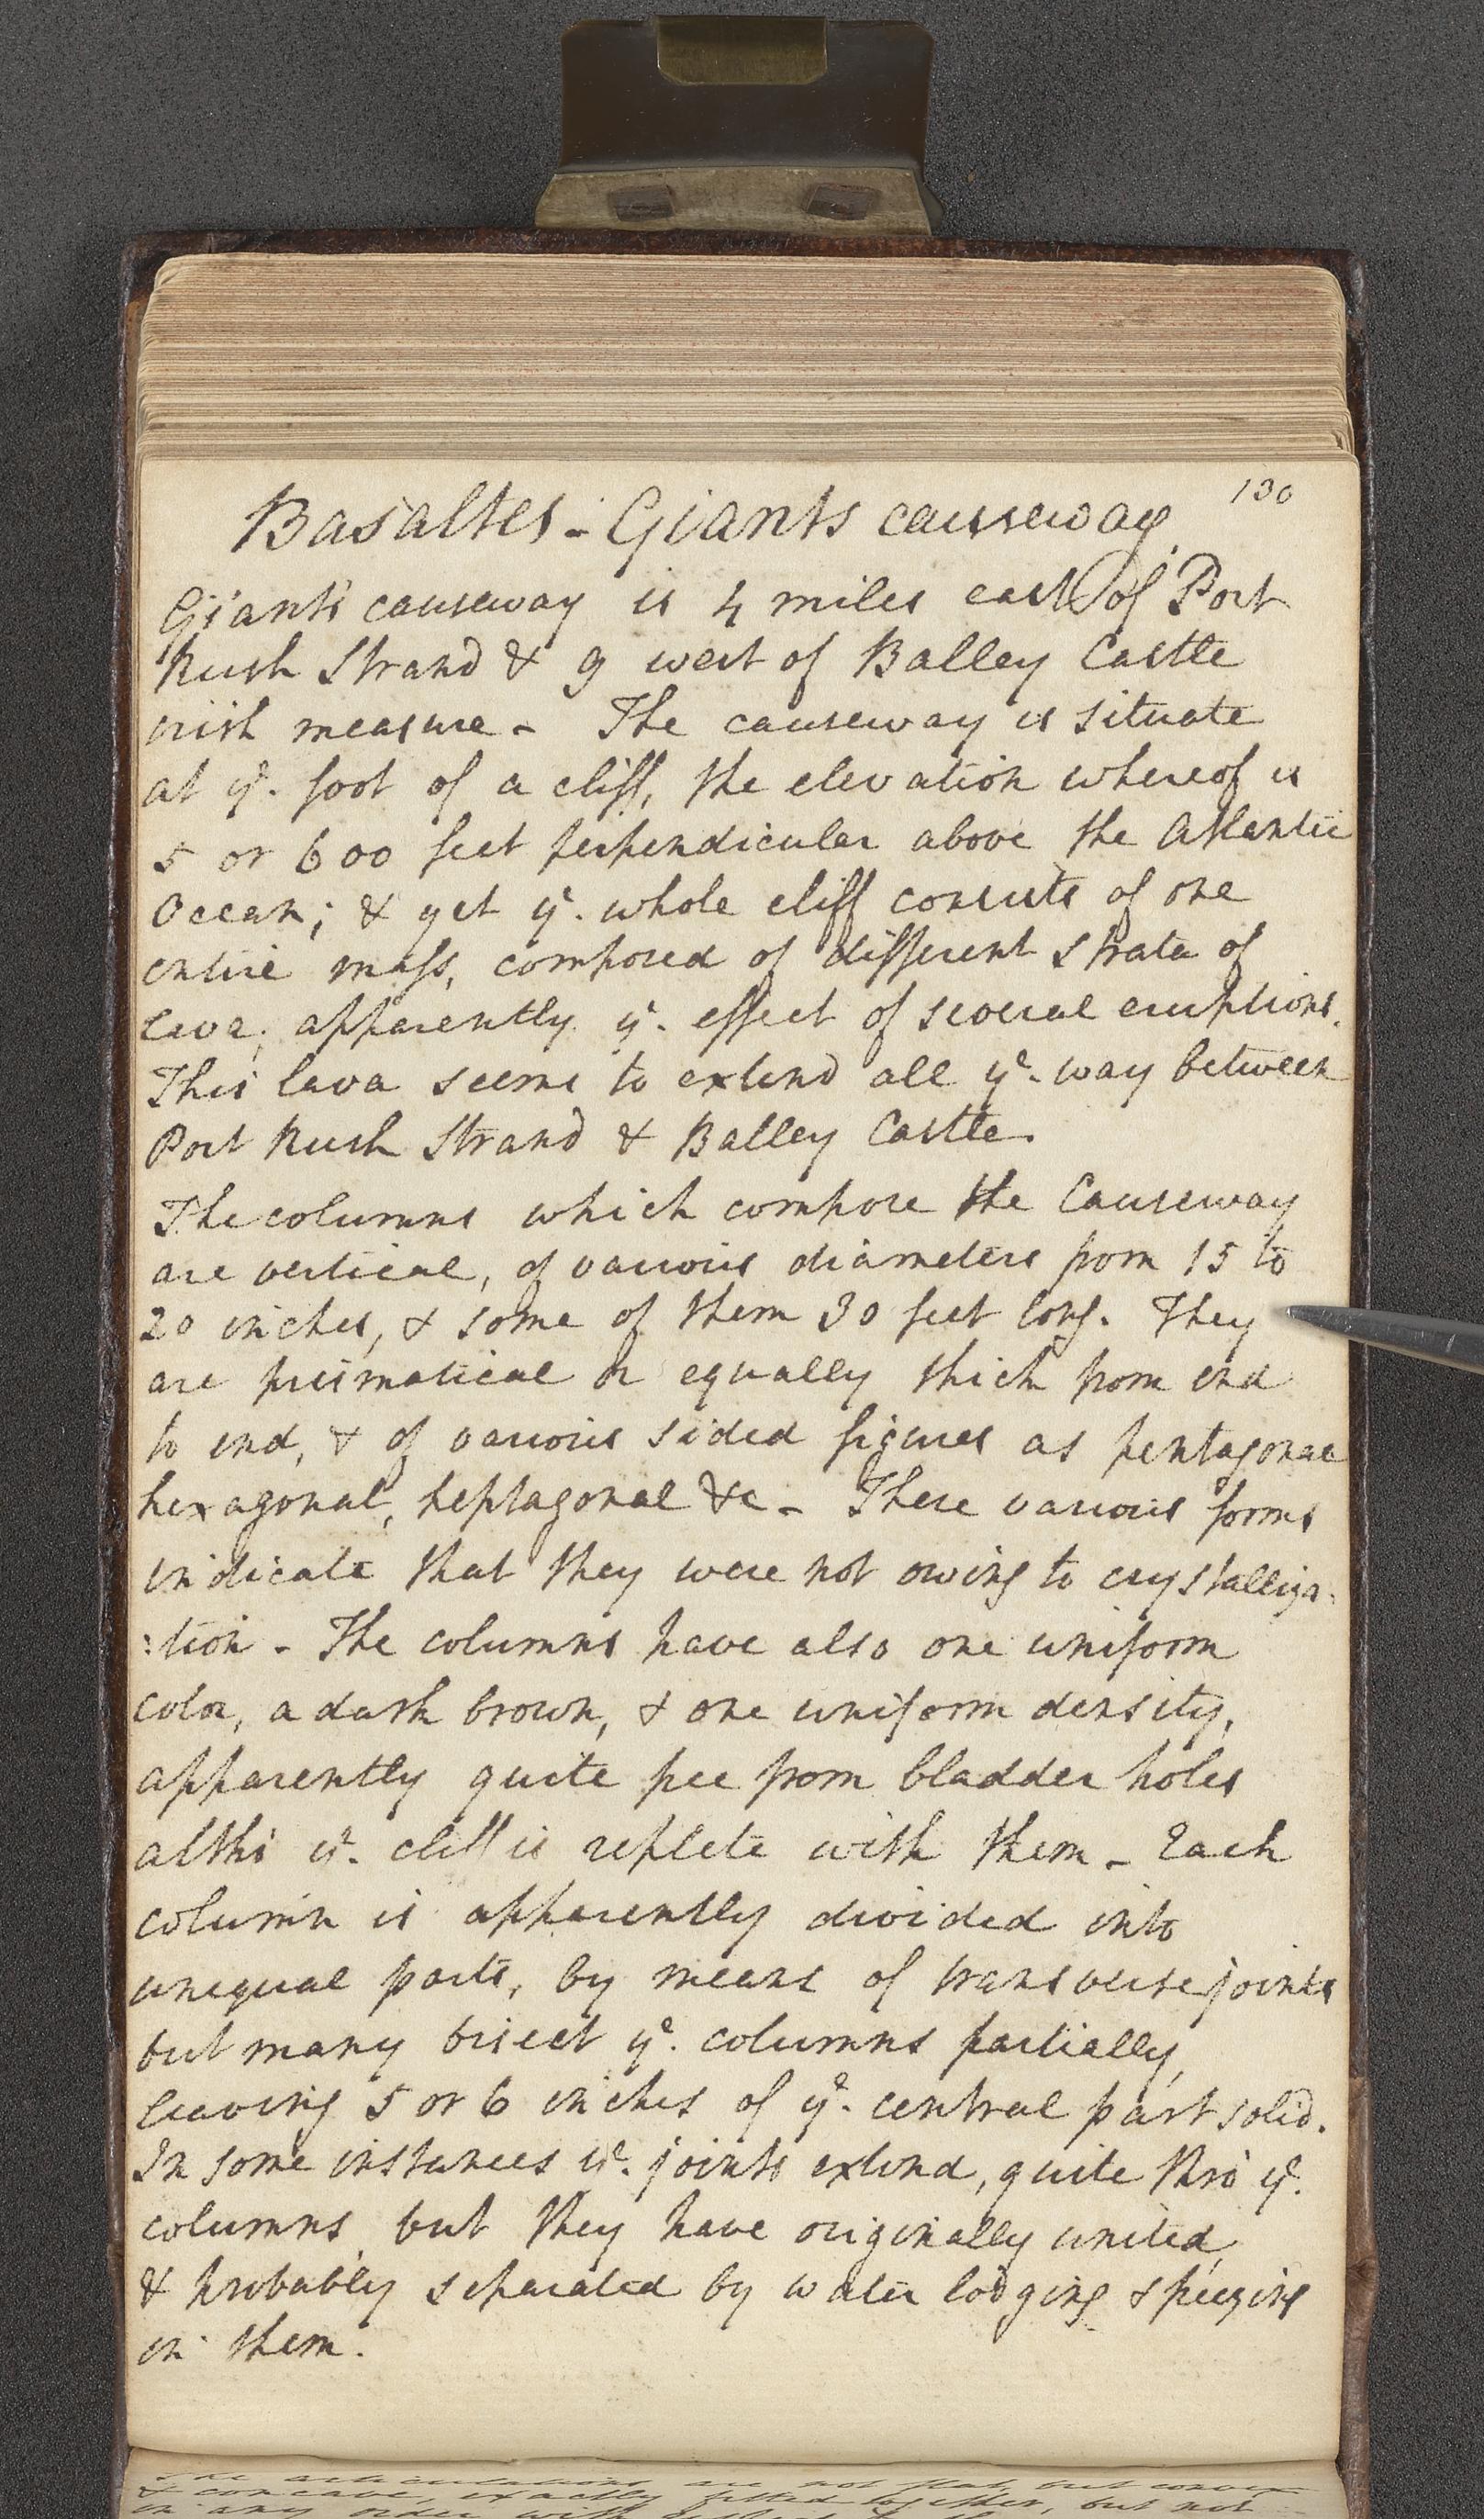 130
Basaltes - Giants causeway.
Giants causeway is 4 miles east of Port
Rush Strand & 9 west of Balley Castle
irish measure - The causeway is situate
at yᵉ. foot of a cliff, the elevation whereof is
5 or 600 feet perpendicular above the Atlantic
Ocean; & yet yᵉ. whole cliff consists of one
entire mass, composed of different strata of
lava, apparently yᵉ. effect of several eruptions.
This lava seems to extend all yᵉ. way between
Port Rush Strand & Balley Castle.
The columns which compose the Causeway
are vertical, of various diameters from 15 to
20 inches, & some of them 30 feet long. They
are prismatical or equally thick from end
to end, & of various sided figures as pentagonal
hexagonal, heptagonal &c - These various forms
indicate that they were not owing to crystalliza:
:tion - The columns have also one uniform
color, a dark brown, & one uniform density,
apparently quite free from bladder holes
altho' yᵉ. cliff is replete with them - Each
column is apparently divided into
unequal parts, by means of transverse joints
but many bisect yᵉ. columns partially,
leaving 5 or 6 inches of yᵉ. central part solid.
In some instances yᵉ. joints extend, quite thro' yᵉ.
columns, but they have originally united,
& probably separated by water lodging & freezing
in them.
The articulations are not flat, but convex
& concave, exactly fitted together, but not
in any order with